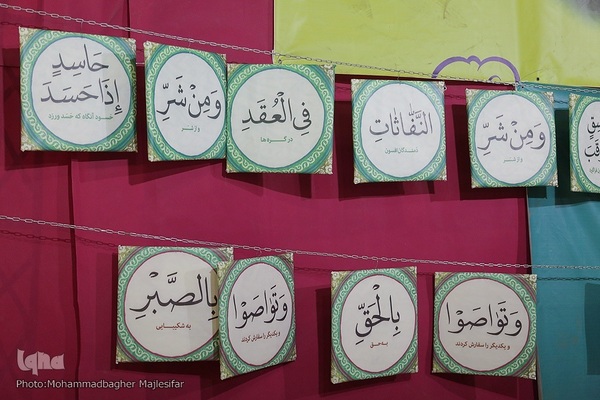 وَمِنْ شَرِّ
و از شر
النَّفَّاثَاتِ
دمندگان افسون
فِي الْعُقَدِ
در گره‌ها
وَمِنْ شَرِّ
و از شر
حَاسِدٍ
إِذَا حَسَدَ
حسود آنگاه که حسد ورزد
وَتَوَاصَوْا
و یکدیگر را سفارش کردند
بِالْحَقِّ
به حق
وَتَوَاصَوْا
و یکدیگر را سفارش کردند
بِالصَّبْرِ
به شکیبایی
iqna
Photo:Mohammadbagher Majlesifar